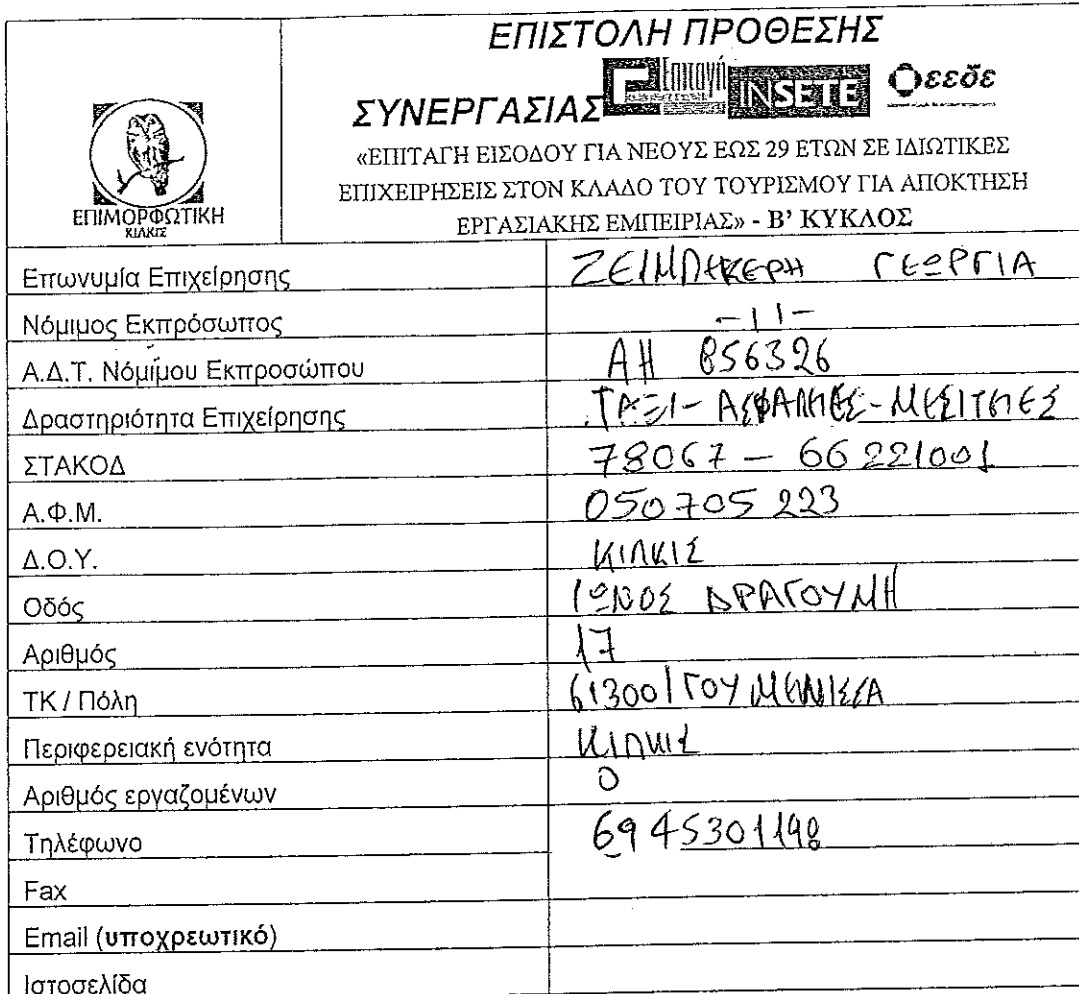 ΕΠΙΣΤΟΛΗ ΠΡΟΘΕΣΗΣ
ΣΥΝΕΡΓΑΣΙΑΣ Επιταγή INSETE εεδε
«ΕΠΙΤΑΓΗ ΕΙΣΟΔΟΥ ΓΙΑ ΝΕΟΥΣ ΕΩΣ 29 ΕΤΩΝ ΣΕ ΙΔΙΩΤΙΚΕΣ
ΕΠΙΧΕΙΡΗΣΕΙΣ ΣΤΟΝ ΚΛΑΔΟ ΤΟΥ ΤΟΥΡΙΣΜΟΥ ΓΙΑ ΑΠΟΚΤΗΣΗ
ΕΡΓΑΣΙΑΚΗΣ ΕΜΠΕΙΡΙΑΣ» - Β' ΚΥΚΛΟΣ
ΕΠΙΜΟΡΦΩΤΙΚΗ
ΚΙΛΚΙΣ
Επωνυμία Επιχείρησης ΓΕΩΡΓΙΑ
Νόμιμος Εκπρόσωπος -11-
Α.Δ.Τ. Νόμιμου Εκπροσώπου ΑΗ 856326
Δραστηριότητα Επιχείρησης ΤΑΞΙ-
ΣΤΑΚΟΔ 78067 - 66221001
Α.Φ.Μ. 050705 223
Δ.Ο.Υ. ΚΙΛΚΙΣ
Οδός ΙΩΝΟΣ ΔΡΑΓΟΥΜΗ
Αριθμός 17
ΤΚ / Πόλη 61300 / ΓΟΥΜΕΝΙΣΣΑ
Περιφερειακή ενότητα ΚΙΛΚΙΣ
Αριθμός εργαζομένων 0
Τηλέφωνο 6945301198
Fax
Email (υποχρεωτικό)
Ιστοσελίδα